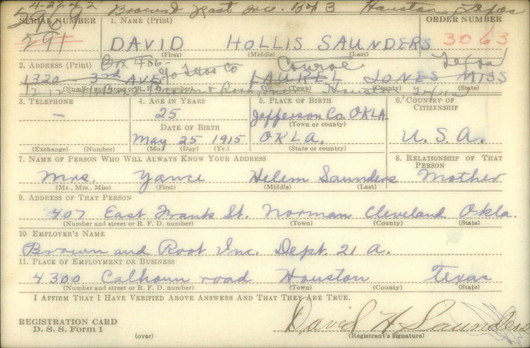 4-27-42 Brown & Root Inc. Box 3 Houston Texas
SERIAL NUMBER 1. NAME (Print) ORDER NUMBER
291 DAVID HOLLIS SAUNDERS 3063
(First) (Middle) (Last)
2. ADDRESS (Print) Box 466 Conroe Texas
1320 3rd AVE. LAUREL JONES MISS
3. TELEPHONE 4. AGE IN YEARS 5. PLACE OF BIRTH 6. COUNTRY OF CITIZENSHIP
— 25 Jefferson Co. OKLA.
(Town or county)
DATE OF BIRTH
May 25 1915 OKLA. U.S.A.
(Exchange) (Number) (Mo.) (Day) (Yr.) (State or country)
7. NAME OF PERSON WHO WILL ALWAYS KNOW YOUR ADDRESS 8. RELATIONSHIP OF THAT PERSON
Mrs. Yance Helem Saunders Mother
(Mr., Mrs., Miss) (First) (Middle) (Last)
9. ADDRESS OF THAT PERSON
407 East Frank St. Norman Cleveland Okla.
(Number and street or R. F. D. number) (Town) (County) (State)
10. EMPLOYER'S NAME
Brown and Root Inc. Dept. 21 A.
11. PLACE OF EMPLOYMENT OR BUSINESS
4300 Calhoun road Houston Texas
(Number and street or R. F. D. number) (Town) (County) (State)
I AFFIRM THAT I HAVE VERIFIED ABOVE ANSWERS AND THAT THEY ARE TRUE.
REGISTRATION CARD David H. Saunders
D. S. S. Form 1 (over) (Registrant's Signature)